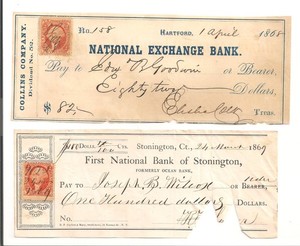 COLLINS COMPANY.
Dividend No. 52.
No. 158 HARTFORD, 1 April 1868
NATIONAL EXCHANGE BANK.
Pay to Edw B Goodwin or Bearer,
Eighty two Dollars,
$ 82
Treas.
Stonington, Ct., 24 March 1869
First National Bank of Stonington,
FORMERLY OCEAN BANK,
PAY TO Joseph B. Wilcox OR BEARER,
One Hundred dollars DOLLARS.